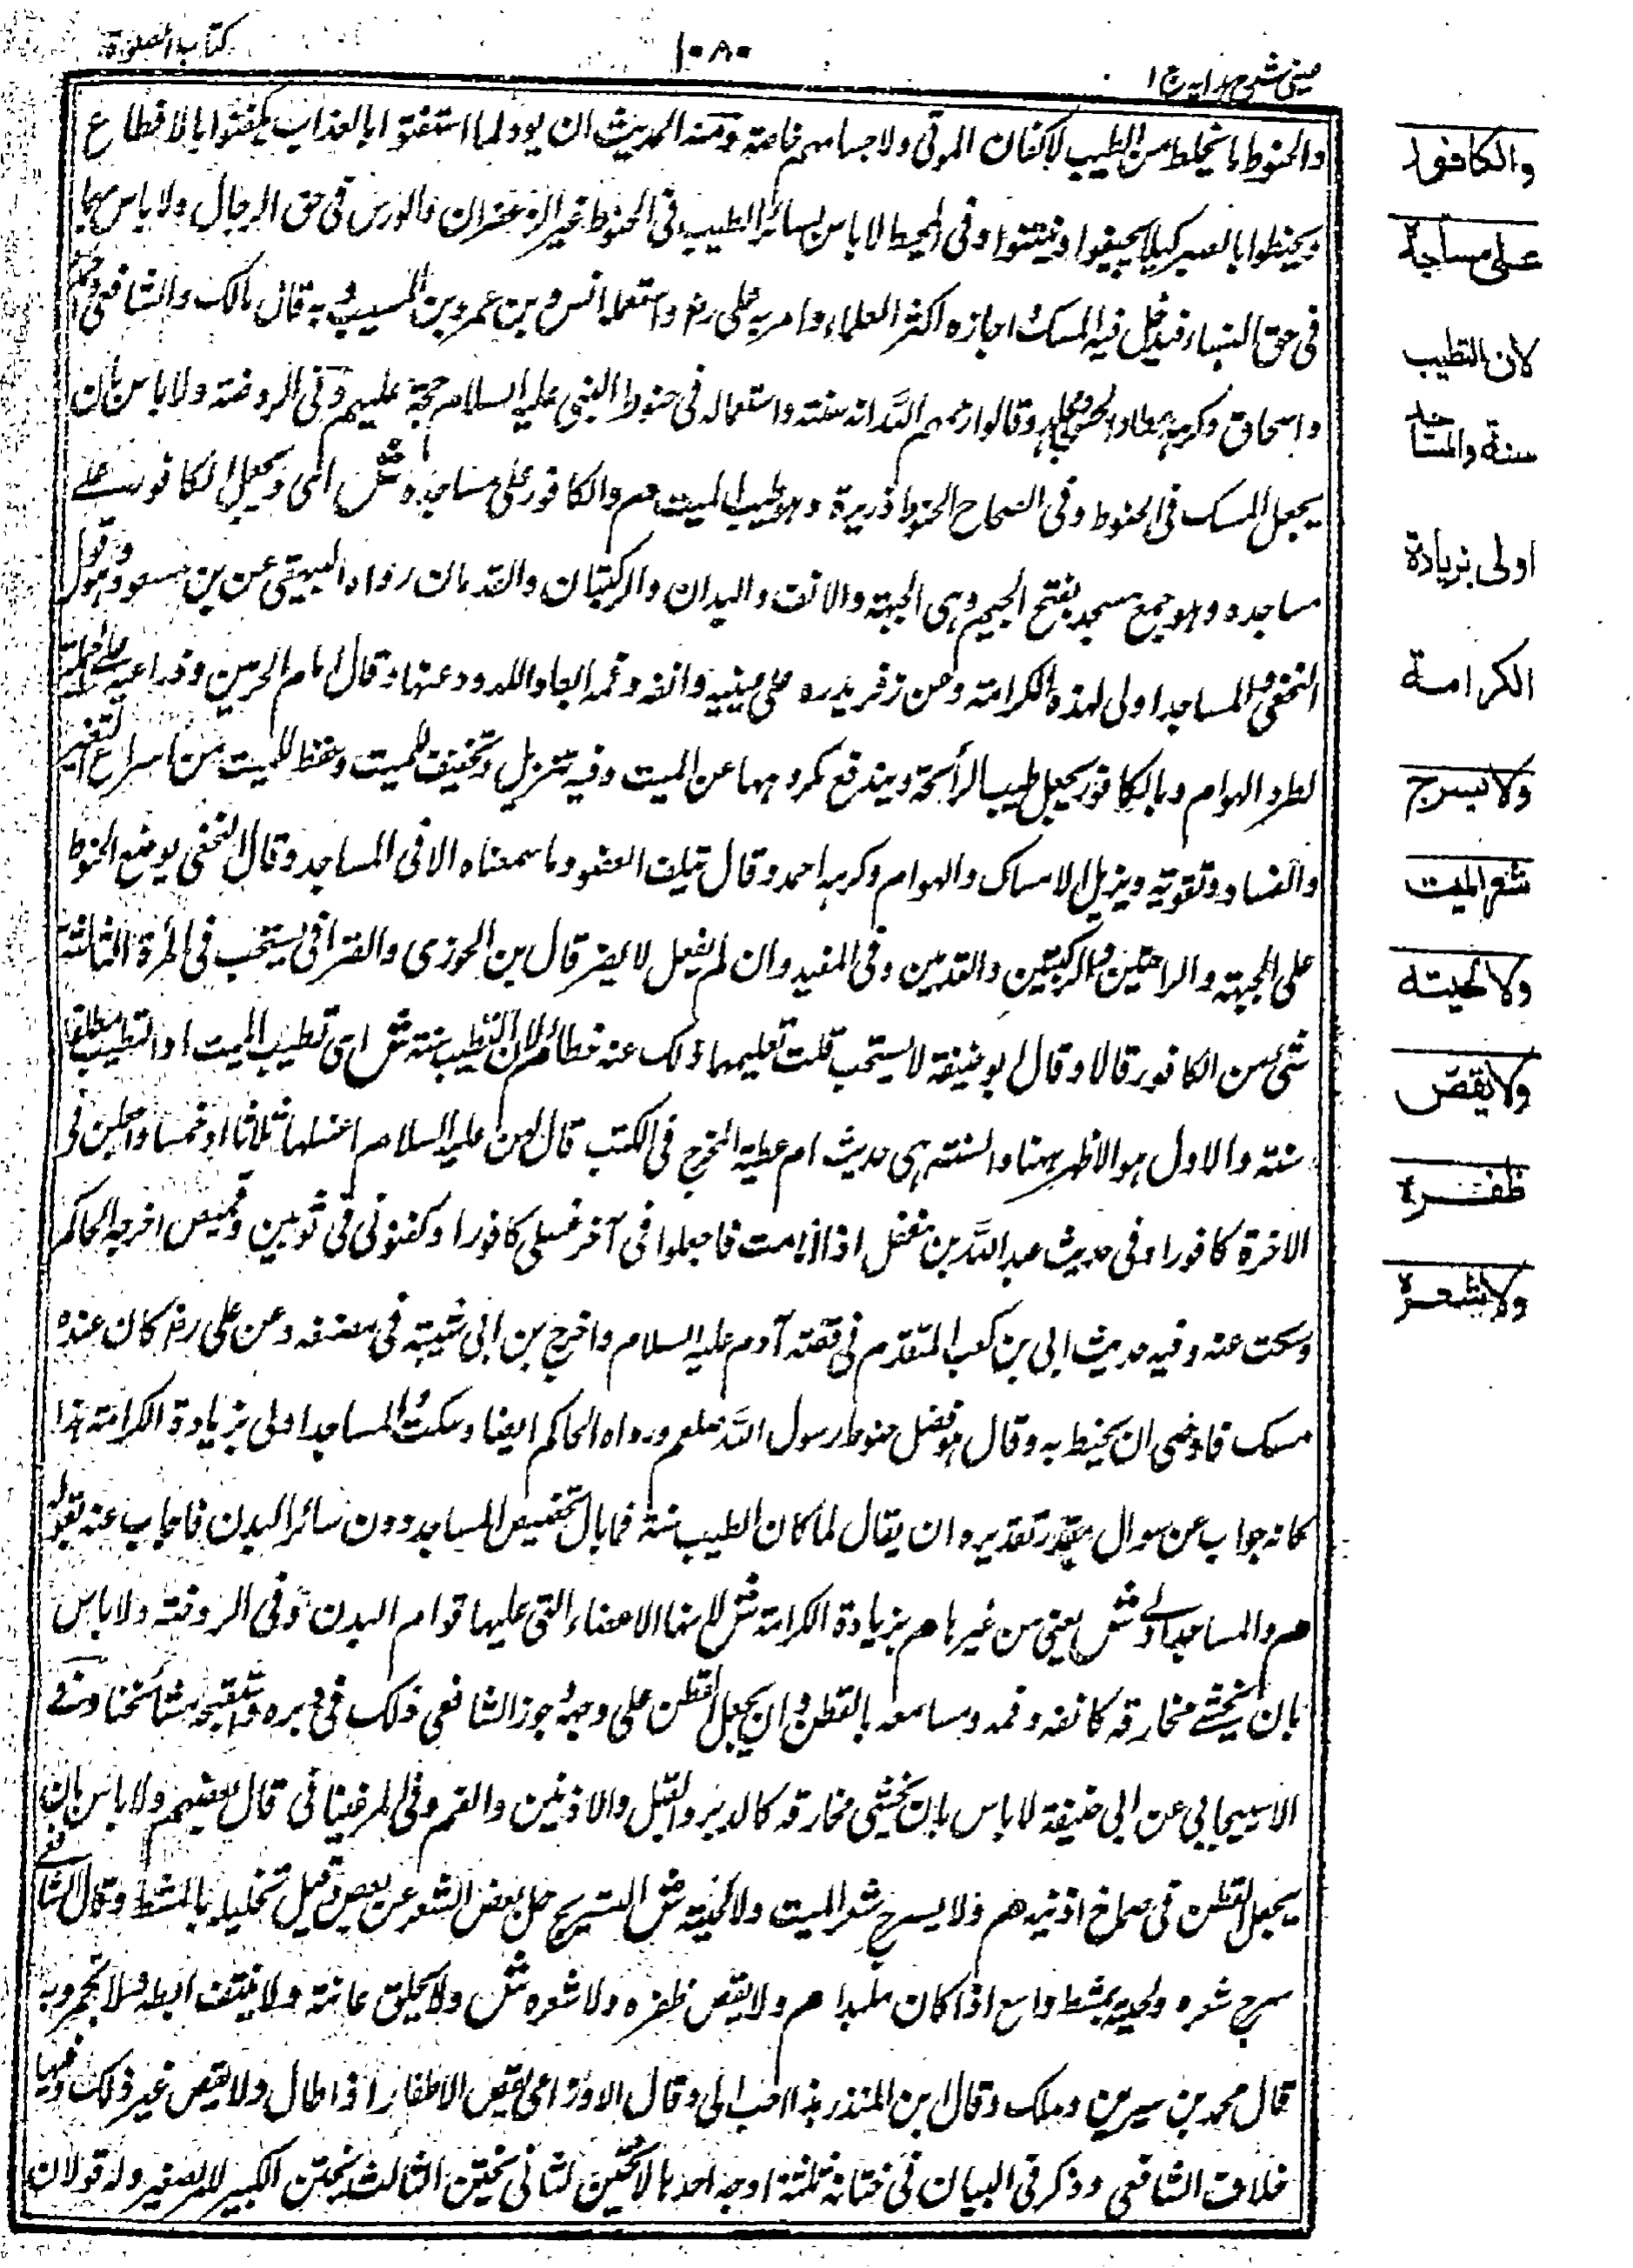 كتاب الصلوة
١٠٨٠
عيني شرح هدايه ج ١
والحنوط ما يخلط من الطيب لاكفان الموتى ولاجسامهم خاصة ومنه الحديث ان ثمود لما استفتوا بالعذاب تكفنوا بالانطاع
وتحنطوا بالصبر كيلا يجيفوا وينتنوا وفى المحيط لا باس بسائر الطيب فى الحنوط غير الزعفران والورس فى حق الرجال ولا باس بهما
فى حق النساء فيدخل فيه المسك واجازه اكثر العلماء وامر به على رض واستعمله انس وبن عمر وبن المسيب وبه قال مالك والشافعى واحمد
واسحاق وكرهه عطاء والحسن ومجاهد وقالوا رحمهم الله انه ميتة واستعماله فى حنوط النبى عليه السلام حجة عليهم وفى الروضة ولا باس بان
يجعل المسك فى الحنوط وفى الصحاح الحنوط ذريرة وهو طيب الميت هم والكافور على مساجده ش اى ويجعل الكافور على
مساجده وهو جمع مسجد بفتح الجيم وهى الجبهة والانف واليدان والركبتان والقدمان رواه البيهقى عن بن مسعود وهو قول
النخعى والمساجد اولى لهذه الكرامة وعن زفر يذره على عينيه وانفه وفمه ابعاد اللدود عنها وقال امام الحرمين
لطرد الهوام وبالكافور يجعل طيب الرائحة ويندفع مكروهها عن الميت وفيه تبريد وتجفيف للميت وحفظ للميت من اسراع التغير
والفساد وتقويته ويزيل الامساك والهوام وكرهه احمد وقال يتلف العضو وما سمعناه الا فى المساجد وقال النخعى يوضع الحنوط
على الجبهة والراحتين والركبتين والقدمين وفى المفيد وان لم يفعل لا يضر قال بن الجوزى والقرافى يستحب فى المرة الثالثة
شئ من الكافور قالا وقال ابو حنيفة لا يستحب قلت نقلهما ذلك عنه خطأ هم لان التطيب سنة ش اى تطييب الميت او التطيب مطلقا
سنة والاول هو الاظهر هنا والسنة هى حديث ام عطية المخرج فى الكتب قال لهن عليه السلام اغسلنها ثلاثا او خمسا واجعلن فى
الاخرة كافورا وفى حديث عبد الله بن مغفل اذا انا مت فاجعلوا فى آخر غسلى كافورا وكفنونى فى ثوبين وقميص اخرجه الحاكم
وسكت عنه وفيه حديث ابى بن كعب المتقدم فى قصة آدم عليه السلام واخرج بن ابى شيبة فى مصنفه وعن على رض كان عنده
مسك فاوصى ان يحنط به وقال هو فضل حنوط رسول الله صلعم ورواه الحاكم ايضا وسكت والمساجد اولى بزيادة الكرامة هذا
كانه جواب عن سوال مقدر تقديره ان يقال لما كان الطيب سنة فما بال تخصيص المساجد دون سائر البدن فاجاب عنه بقوله
هم والمساجد اولى ش يعنى من غيرها هم بزيادة الكرامة ش لانها الاعضاء التى عليها قوام البدن وفى الروضة ولا باس
بان يحشى مخارقه كانفه وفمه ومسامعه بالقطن وان يجعل القطن على وجهه وجوز الشافعى ذلك فى دبره واستقبحه مشائخنا وفى
الاسبيجابى عن ابى حنيفة لا باس بان يحشى مخارقه كالدبر والقبل والاذنين والفم وفى المرغينانى قال بعضهم ولا باس بان
يجعل القطن فى صماخ اذنيه هم ولا يسرح شعر الميت ولا لحيته ش التسريح حل بعض الشعر عن بعض وقيل تخليله بالمشط وقال الشافعى
يسرح شعره ولحيته بمشط واسع اذا كان ملبدا هم ولا يقص ظفره ولا شعره ش ولا يحلق عانته ولا ينتف ابطه
قال محمد بن سيرين ومالك وقال ابن المنذر هذا احب الى وقال الاوزاعى يقص الاظفار اذا طال ولا يقص غير ذلك وفيها
خلاف الشافعى وذكر فى البيان فى ختانه ثلثة اوجه احدها لا يختن الثانى يختن الثالث يختن الكبير لا الصغير وله قولان
والكافور
على مساجده
لان التطيب
سنة والمساجد
اولى بزيادة
الكرامة
ولا يسرح
شعر الميت
ولا لحيته
ولا يقص
ظفره
ولا شعره